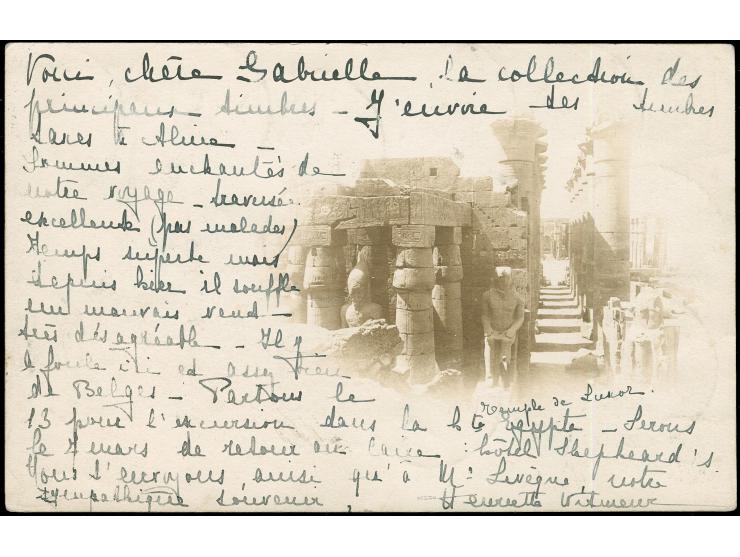 Voici, chère Gabrielle, la collection des
principaux timbres – J'envoie des timbres
taxes à Aline –
Sommes enchantés de
notre voyage – traversée
excellente (pas malades)
temps superbe mais
depuis hier il souffle
un mauvais vent –
très désagréable – Il y
a foule ici et assez bien
de Belges – Partons le
13 pour l'excursion dans la hte Egypte – Serons
Temple de Luxor.
le 7 mars de retour au Caire : hôtel Shepheard's.
Vous envoyons, ainsi qu'à Mr Levêque, notre
sympathique souvenir,
Henriette